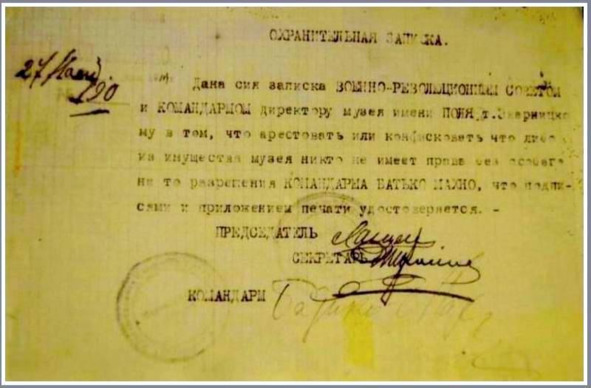 ОХРАНИТЕЛЬНАЯ ЗАПИСКА.
Дана сия записка ВОЕННО-РЕВОЛЮЦИОННЫМ СОВЕТОМ
и КОМАНДАРМОМ директору музея имени ПОЛЯ, т. Эварницко
му в том, что арестовать или конфисковать что либо
из имущества музея никто не имеет права без особаго
на то разрешения КОМАНДАРМА БАТЬКО МАХНО, что подпи-
сями и приложением печати удостоверяется. -
ПРЕДСЕДАТЕЛЬ
СЕКРЕТАРЬ
КОМАНДАРМ